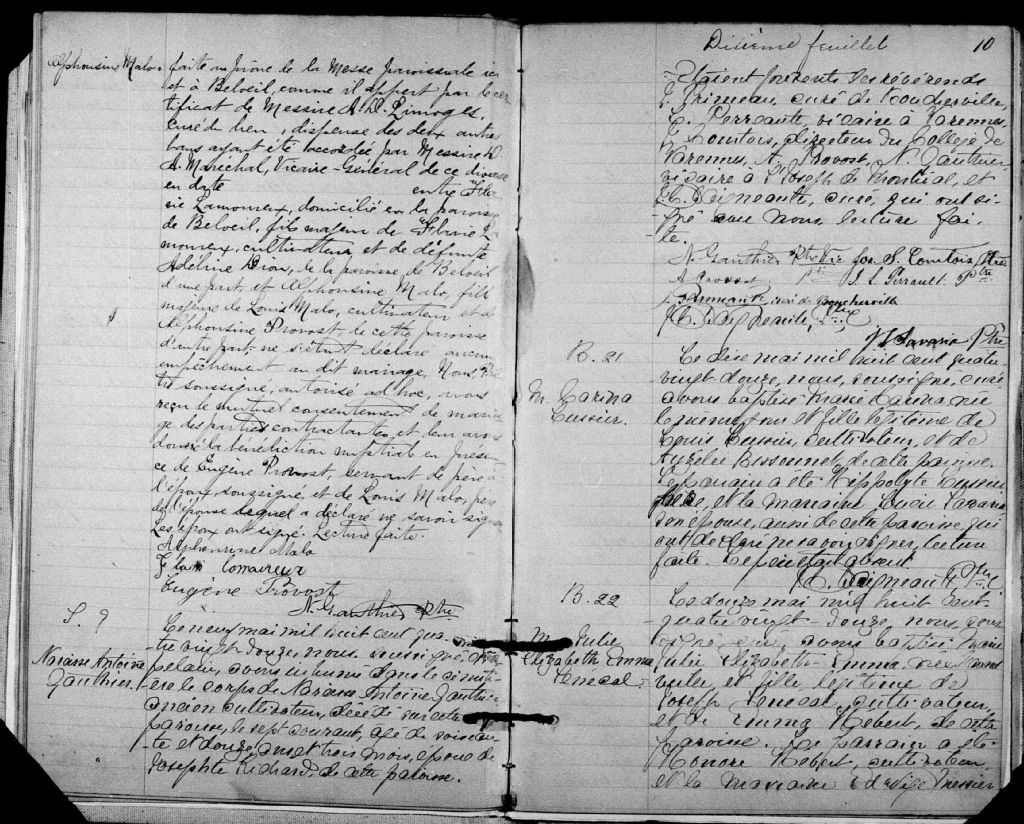 Alphonsine Malo. faite au prône de la Messe paroissiale ici
et à Beloeil, comme il appert par le cer
tificat de Messire Limoges,
curé du lieu, dispense des deux autres
bans ayant été accordée par Messire
A. Maréchal, Vicaire-Général de ce diocèse
en date entre Fla
vie Lamoureux, domicilié en la paroisse
de Beloeil, fils majeur de Flavie La
moureux, cultivateur et de défunte
Adéline Dion, de la paroisse de Beloeil
d'une part et Alphonsine Malo, fille
majeure de Louis Malo, cultivateur et d'
Alphonsine Provost de cette paroisse
d'autre part; ne s'étant déclaré aucun
empêchement au dit mariage, Nous Prê
tre soussigné, autorisé ad hoc, avons
reçu le mutuel consentement de maria
ge des parties contractantes, et leur avons
donné la bénédiction nuptiale en présen
ce de Eugène Provost, servant de père à
l'époux soussigné, et de Louis Malo, père
de l'épouse lequel a déclaré ne savoir signer
Les époux ont signé. Lecture faite.
Alphonsine Malo
Lamoureux
Eugène Provost
N. Gauthier Ptre
S. 9
Narcisse Antoine
Gauthier.
Le neuf mai mil huit cent qua
tre vingt-douze, nous soussigné
avons inhumé dans le cimeti
ère le corps de Narcisse Antoine Gauthier
ancien cultivateur, décédé sur cette
paroisse, le sept courant, âgé de soixan
te et douze ans et trois mois, époux de
Josephte Richard, de cette paroisse.
Dixième feuillet 10
Etaient présents les révérends
F. Primeau, curé de Boucherville,
Perreault, vicaire à Varennes,
Comtois, directeur du Collège de
Varennes, A. Provost, N. Gauthier,
vicaire à St Joseph de Montréal, et
Daigneault, curé, qui ont si-
gné avec nous lecture fai-
te.
N. Gauthier Ptre Vic Jos S. Comtois Ptre
A Provost J. L. Perrault Ptre
curé de Boucherville
Savaria Ptre
B. 21
M. Carina
Cussier.
Le dix mai mil huit cent quatre
vingt douze, nous, soussigné, curé
avons baptisé Marie Carina née
le même jour et fille légitime de
Louis Cussier, cultivateur, et de
Aurélie Bissonnet, de cette paroisse.
Le parrain a été Hippolyte Cussier
et la marraine Lucie Savaria
son épouse, aussi de cette paroisse, qui
ont déclaré ne savoir signer, lecture
faite. Le père était absent
Daigneault Ptre
B. 22
M. Julie
Elizabeth Emma
Senecal.
Le douze mai mil huit cent
quatre vingt-douze, nous, sous
signé curé, avons baptisé Marie
Julie Elizabeth-Emma, née
et fille légitime de
Joseph Senecal, cultivateur
et de Emma Hebert, de cette
paroisse. Le parrain a été
Honoré Hebert, cultivateur
et la marraine Edwidge